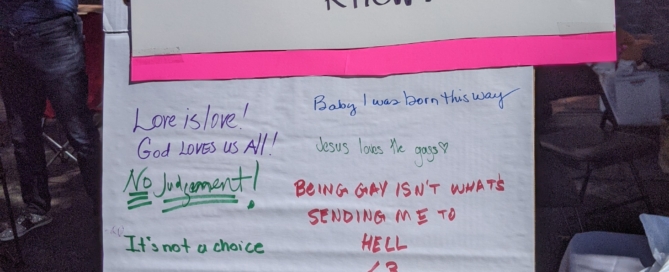 KNOW?
Love is love!
God LOVES US All!
No Judgement!
It's not a choice
Baby I was born this way
Jesus loves the gays♡
BEING GAY ISN'T WHAT'S
SENDING ME TO
HELL
<3